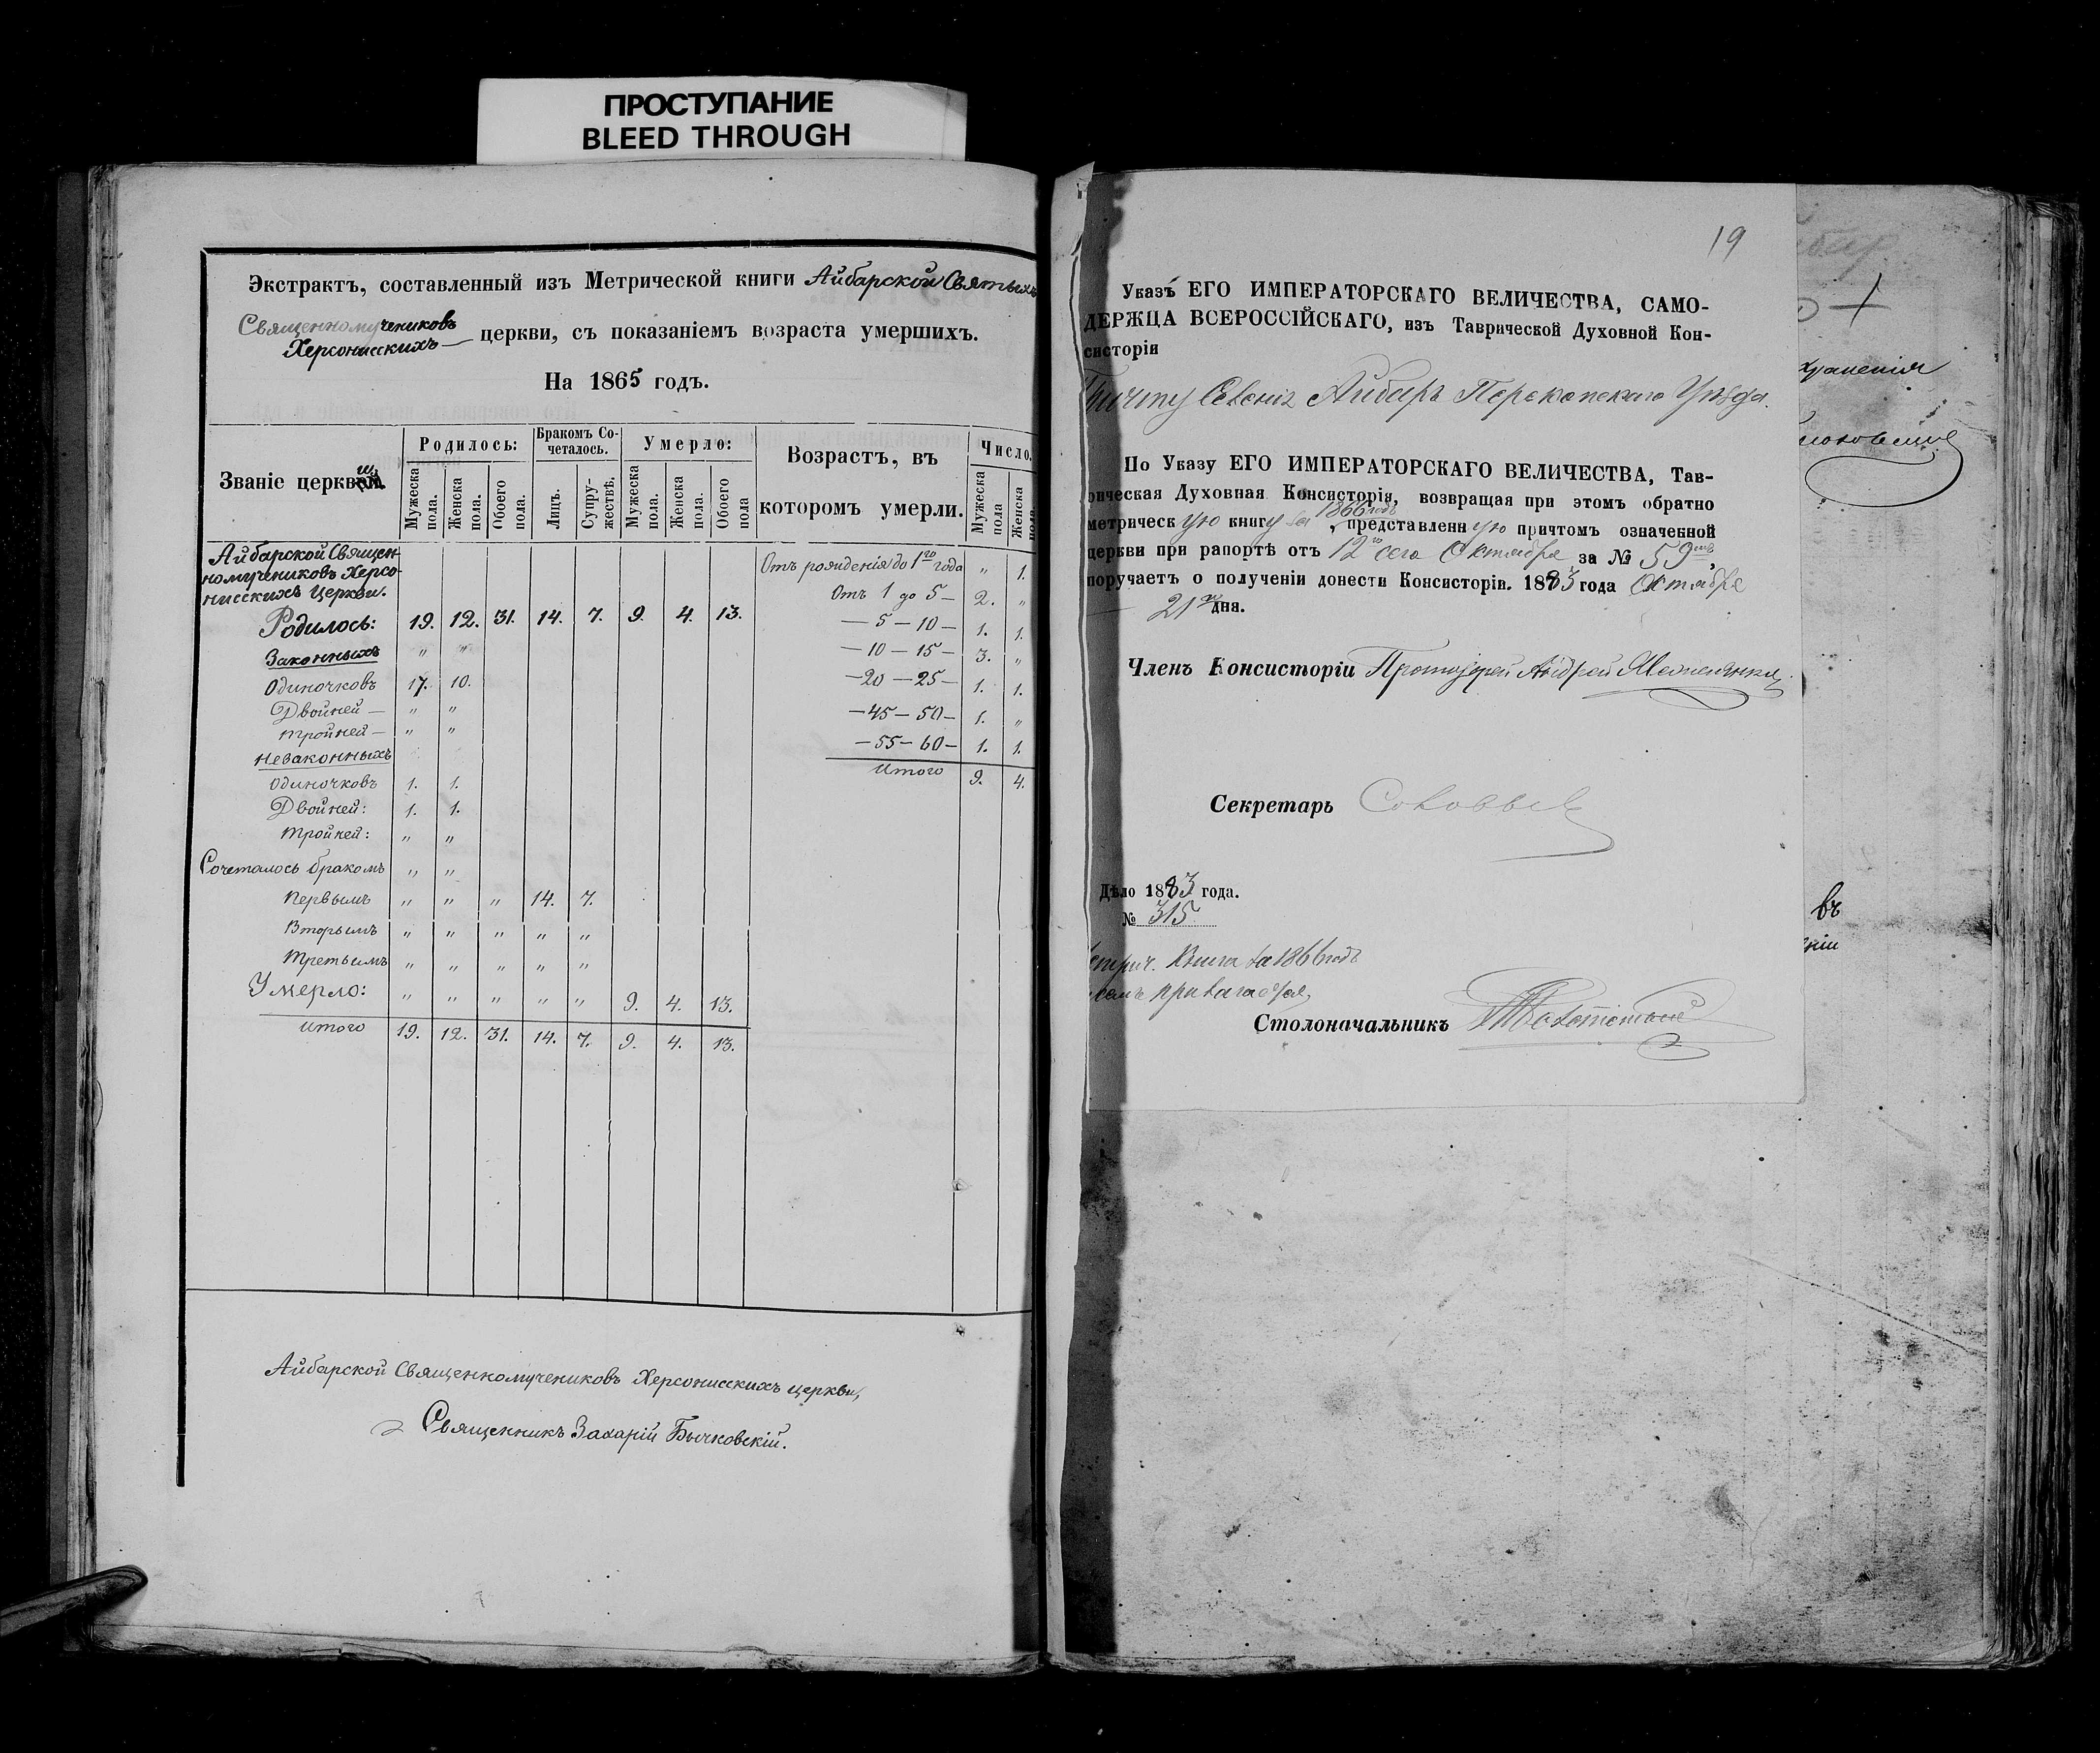 ПРОСТУПАНИЕ
BLEED THROUGH
Экстрактъ, составленный изъ Метрической книги Айбарской Святыхъ
Священномучениковъ
Херсонисскихъ — церкви, съ показаніемъ возраста умершихъ.
На 1865 годъ.
Званіе церкв
Родилось:
Бракомъ Со-
четалось.
Умерло:
Возрастъ, въ
которомъ умерли.
Число.
Мужеска пола.
Женска пола.
Обоего пола.
Лицъ.
Супру-
жествъ.
Мужеска пола.
Женска пола.
Обоего пола
Мужеска пола
Женска пола
Айбарской Священ-
номучениковъ Херсо-
нисскихъ Церкви.
Родилось: 19. 12. 31. 14. 7. 9. 4. 13.
Законныхъ " "
Одиночковъ 17. 10.
Двойней — " "
Тройней — " "
Незаконныхъ
Одиночковъ 1. 1.
Двойней: 1. 1.
Тройней: " "
Сочеталось бракомъ " "
Первымъ " " " 14. 7.
Вторымъ " " " " "
Третьимъ " " " " "
Умерло: " " " " " 9. 4. 13.
Итого 19. 12. 31. 14. 7. 9. 4. 13.
Отъ рожденія до 1го года " 1.
Отъ 1 до 5 — 2. "
— 5 — 10 — 1. 1.
— 10 — 15 — 3. "
— 20 — 25 — 1. 1.
— 45 — 50 — 1. "
— 55 — 60 — 1. 1.
Итого 9. 4.
Айбарской Священномучениковъ Херсонисскихъ церкви,
Священникъ Захарій Бычковскій.
19
Указъ ЕГО ИМПЕРАТОРСКАГО ВЕЛИЧЕСТВА, САМО-
ДЕРЖЦА ВСЕРОССІЙСКАГО, изъ Таврической Духовной Кон-
систоріи
Причту Селенія Айбаръ Перекопскаго Уѣзда.
По Указу ЕГО ИМПЕРАТОРСКАГО ВЕЛИЧЕСТВА, Тав-
рическая Духовная Консисторія, возвращая при этомъ обратно
метрическую книгу за 1866 годъ, представленную причтомъ означенной
церкви при рапортѣ отъ 12го сего Октября за № 59,
поручаетъ о полученіи донести Консисторіи. 1883 года Октября
— 21 дня.
Членъ Консисторіи Протоіерей Андрей
Секретарь Соловьев
Дѣло 1883 года.
№ 315
Книга за 1866 годъ
прилагается
Столоначальникъ
храненія
въ
ніи